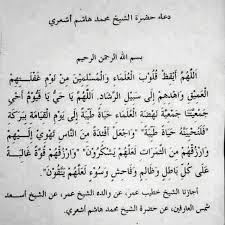 دعاء حضرة الشيخ محمد هاشم أشعري
بسم الله الرحمن الرحيم
اَللّٰهُمَّ أَيْقِظْ قُلُوْبَ الْعُلَمَاءِ وَالْمُسْلِمِيْنَ مِنْ نَوْمِ غَفْلَتِهِمْ
الْعَمِيْقِ وَاهْدِهِمْ إِلَى سَبِيْلِ الرَّشَادِ. اَللّٰهُمَّ يَا حَيُّ يَا قَيُّوْمُ أَحْيِ
جَمْعِيَّتَنَا جَمْعِيَّةَ نَهْضَةِ الْعُلَمَاءِ حَيَاةً طَيِّبَةً إِلَى يَوْمِ الْقِيَامَةِ بِبَرَكَةِ
"فَلَنُحْيِيَنَّهُ حَيَاةً طَيِّبَةً" وَاجْعَلْ أَفْئِدَةً مِنَ النَّاسِ تَهْوِيْ إِلَيْهِمْ
وَارْزُقْهُمْ مِنَ الثَّمَرَاتِ لَعَلَّهُمْ يَشْكُرُوْنَ" وَارْزُقْهُمْ قُوَّةً غَالِبَةً
عَلَى كُلِّ بَاطِلٍ وَظَالِمٍ وَفَاحِشٍ وَسُوْءٍ لَعَلَّهُمْ يَتَّقُوْنَ".
أجازنا الشيخ خطيب عمر، عن والده الشيخ عمر، عن الشيخ أسعد
شمس العارفين، عن حضرة الشيخ محمد هاشم أشعري.